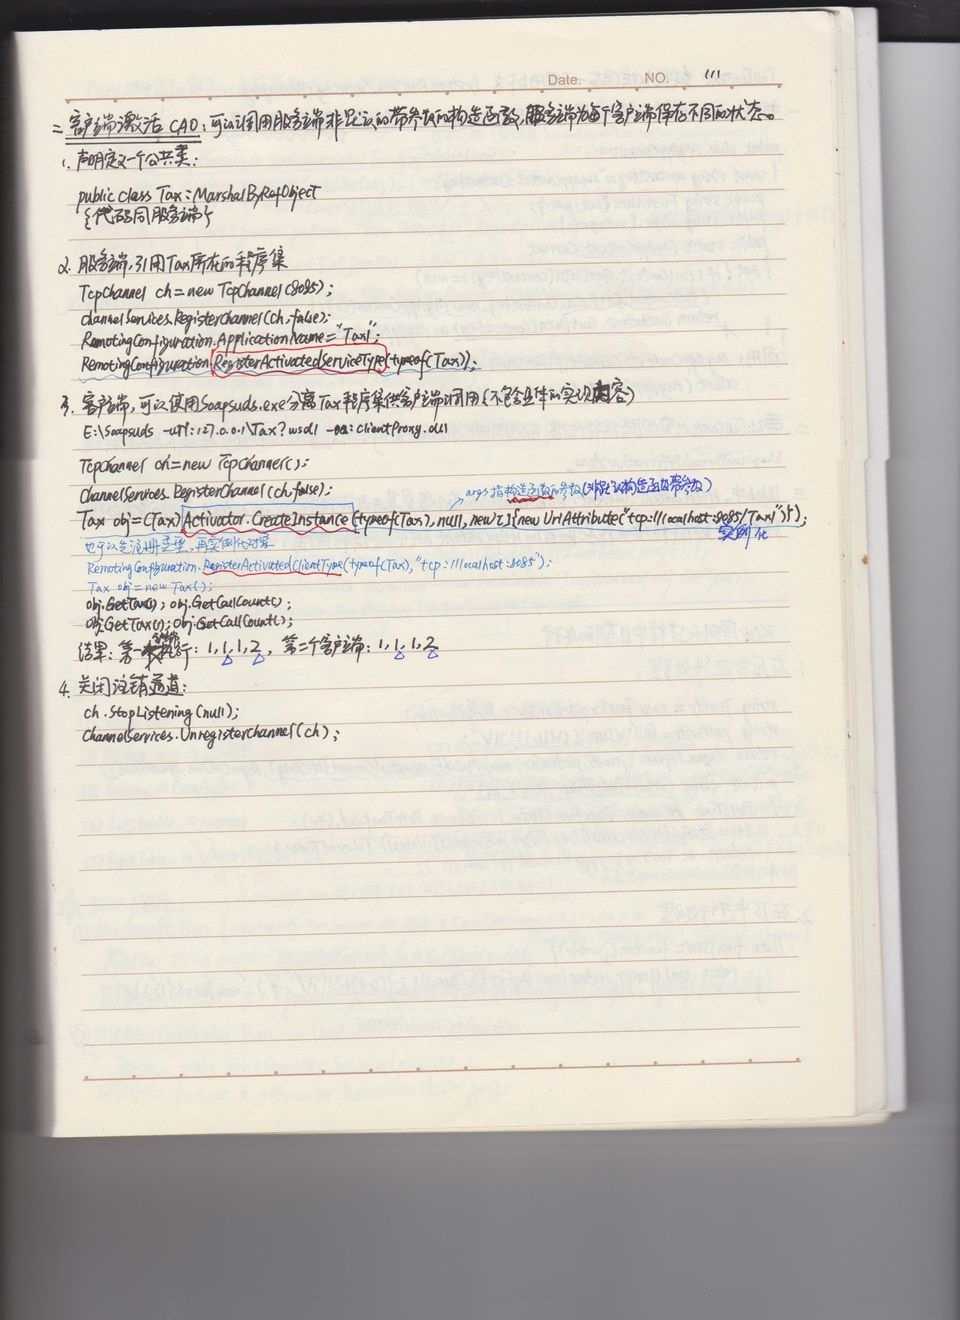 Date. NO. 111
二 客户端激活 CAO：可以调用服务端非默认的带参数的构造函数，服务端为每个客户端保存不同的状态。
1. 声明定义一个公共类：
public class Tax : MarshalByRefObject
{代码同服务端}
2. 服务端，引用Tax所在的程序集
TcpChannel ch = new TcpChannel(8085);
ChannelServices.RegisterChannel(ch, false);
RemotingConfiguration.ApplicationName = "Tax";
RemotingConfiguration.RegisterActivatedServiceType(typeof(Tax));
3. 客户端，可以使用Soapsuds.exe分离Tax程序集供客户端调用(不包含具体的实现内容)
E:\Soapsuds -url:127.0.0.1\Tax?wsdl -oa:clientProxy.dll
TcpChannel ch = new TcpChannel();
ChannelServices.RegisterChannel(ch, false);
args指构造函数的参数(非默认构造函数带参数)
Tax obj = (Tax)Activator.CreateInstance(typeof(Tax), null, new[]{new UrlAttribute("tcp://localhost:8085/Tax")});
实例化
也可以先注册类型，再实例化对象
RemotingConfiguration.RegisterActivatedClientType(typeof(Tax), "tcp://localhost:8085");
Tax obj = new Tax();
obj.GetTax(); obj.GetCallCount();
obj.GetTax(); obj.GetCallCount();
结果：第一 ：1, 1, 1, 2，第二个客户端：1, 1, 1, 2
4. 关闭注销通道：
ch.StopListening(null);
ChannelServices.UnregisterChannel(ch);